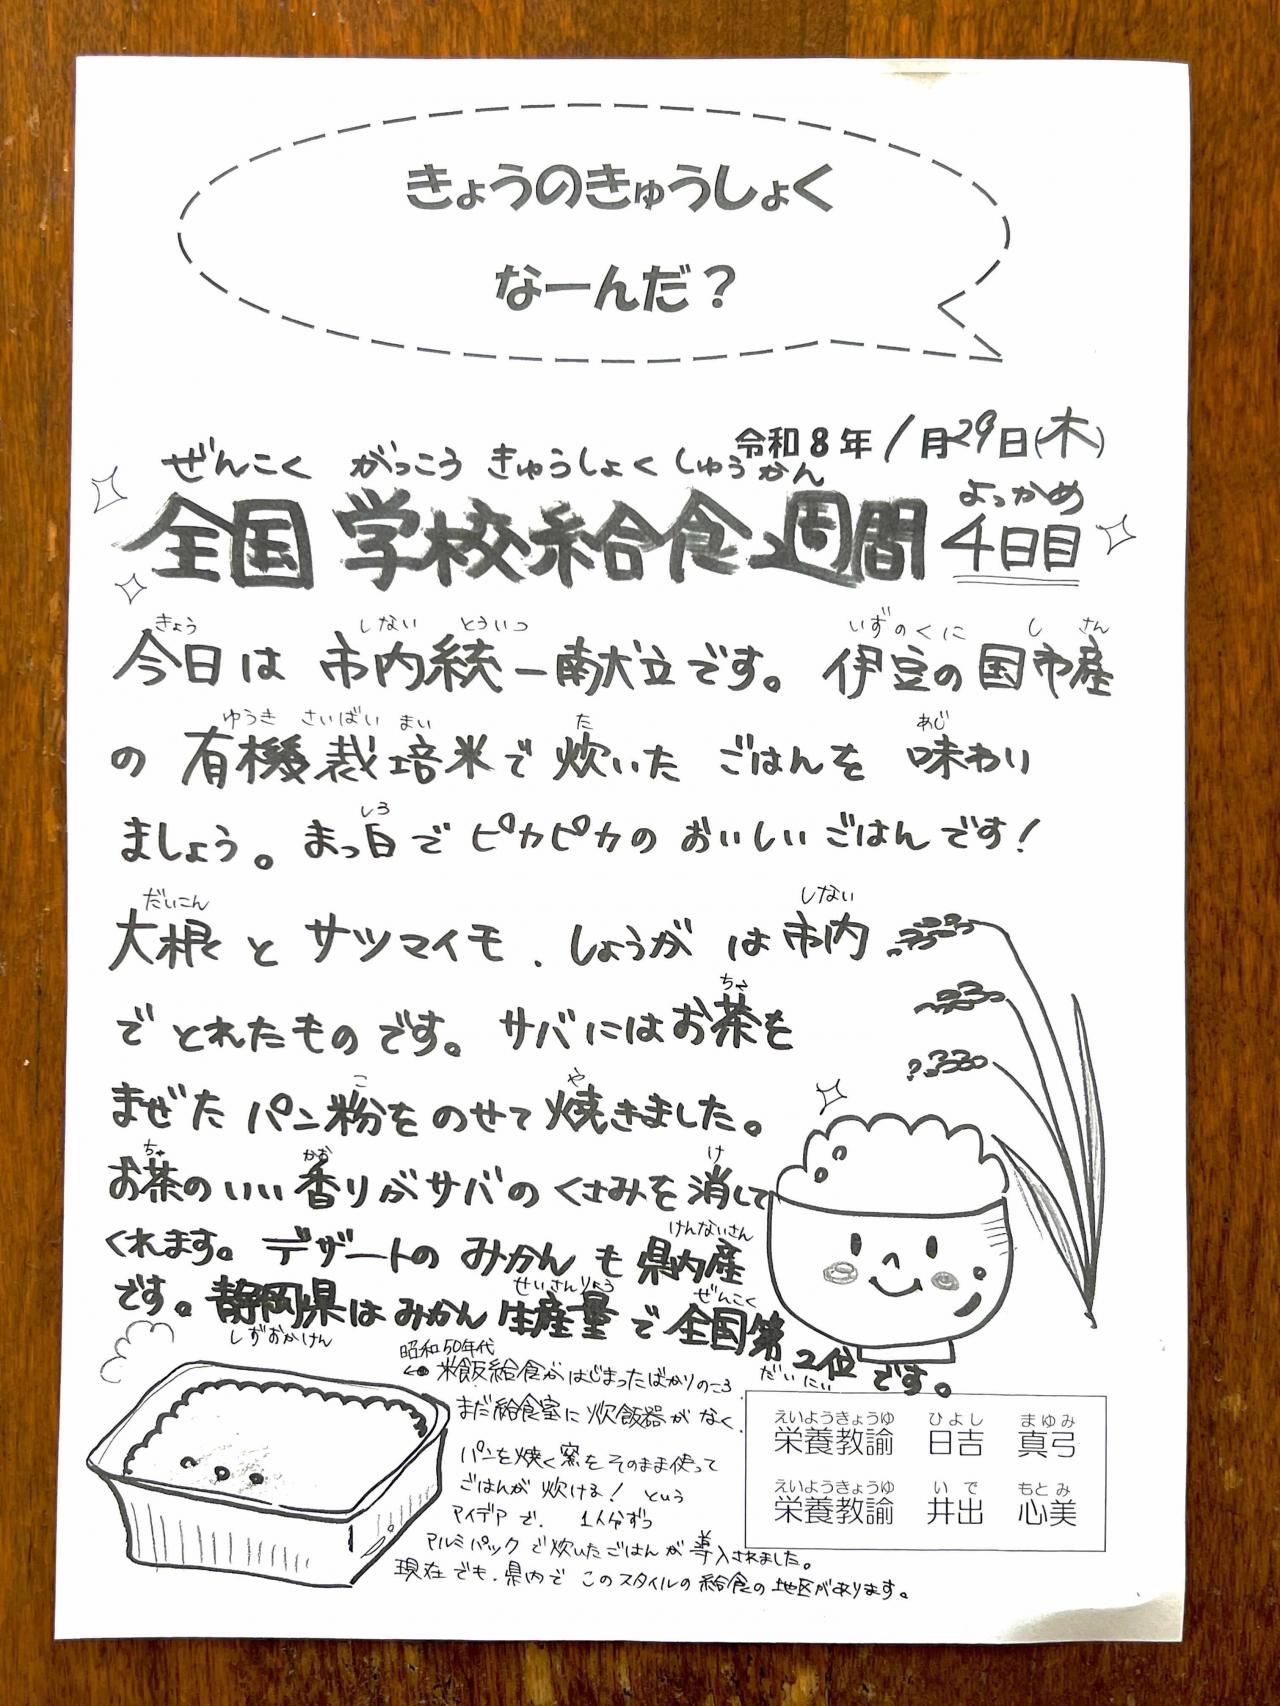 きょうのきゅうしょく
なーんだ？
令和8年1月29日(木)
ぜんこく がっこう きゅうしょく しゅうかん
よっかめ
全国学校給食週間 4日目
きょう しない とういつ いずのくに し さん
今日は 市内統一献立です。伊豆の国市産
ゆうき さいばい まい た あじ
の 有機栽培米で 炊いた ごはんを 味わい
しろ
ましょう。まっ白で ピカピカの おいしいごはんです！
だいこん しない
大根と サツマイモ、しょうが は市内
ちゃ
で とれたものです。サバにはお茶を
こ や
まぜた パン粉を のせて 焼きました。
ちゃ かお け
お茶のいい香りがサバの くさみを消して
けんないさん
くれます。デザートの みかんも 県内産
せいさんりょう ぜんこく
です。静岡県はみかん 生産量で 全国第2位です。
しずおかけん だいにい
昭和50年代
←● 米飯給食がはじまったばかりのころ
まだ給食室に炊飯器がなく、
パンを焼く窯をそのまま使って
ごはんが炊ける！という
アイデアで、1人分ずつ
アルミパックで炊いたごはんが導入されました。
現在でも、県内でこのスタイルの給食の地区があります。
えいようきょうゆ ひよし まゆみ
栄養教諭 日吉 真弓
えいようきょうゆ いで もとみ
栄養教諭 井出 心美